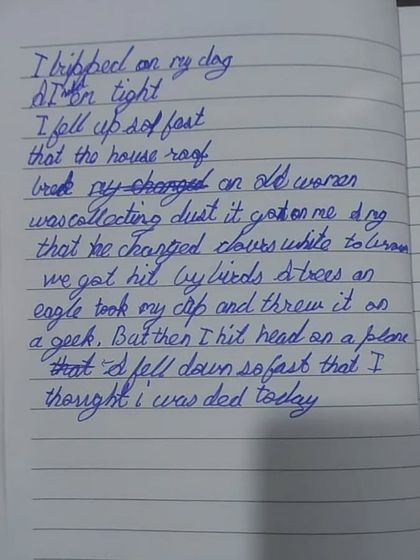 I tripped on my dog
& I'm on tight
I fell up so fast
that the house roof
break my changed an old woman
was collecting dust it got on me & my
that he changed colours white to brown
we got hit by birds & trees an
eagle took my cap and threw it on
a geek. But then I hit head on a plane
that & fell down so fast that I
thought i was ded today